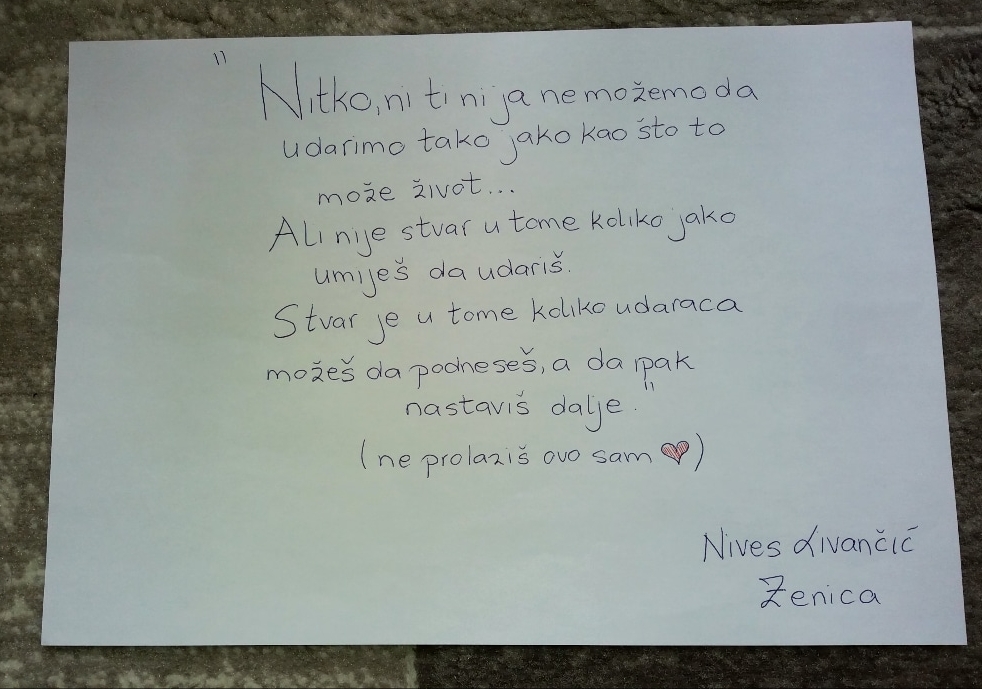 "Nitko, ni ti ni ja ne možemo da
udarimo tako jako kao što to
može život...
Ali nije stvar u tome koliko jako
umiješ da udariš.
Stvar je u tome koliko udaraca
možeš da podneseš, a da ipak
nastaviš dalje."
(ne prolaziš ovo sam ❤)
Nives Livančić
Zenica